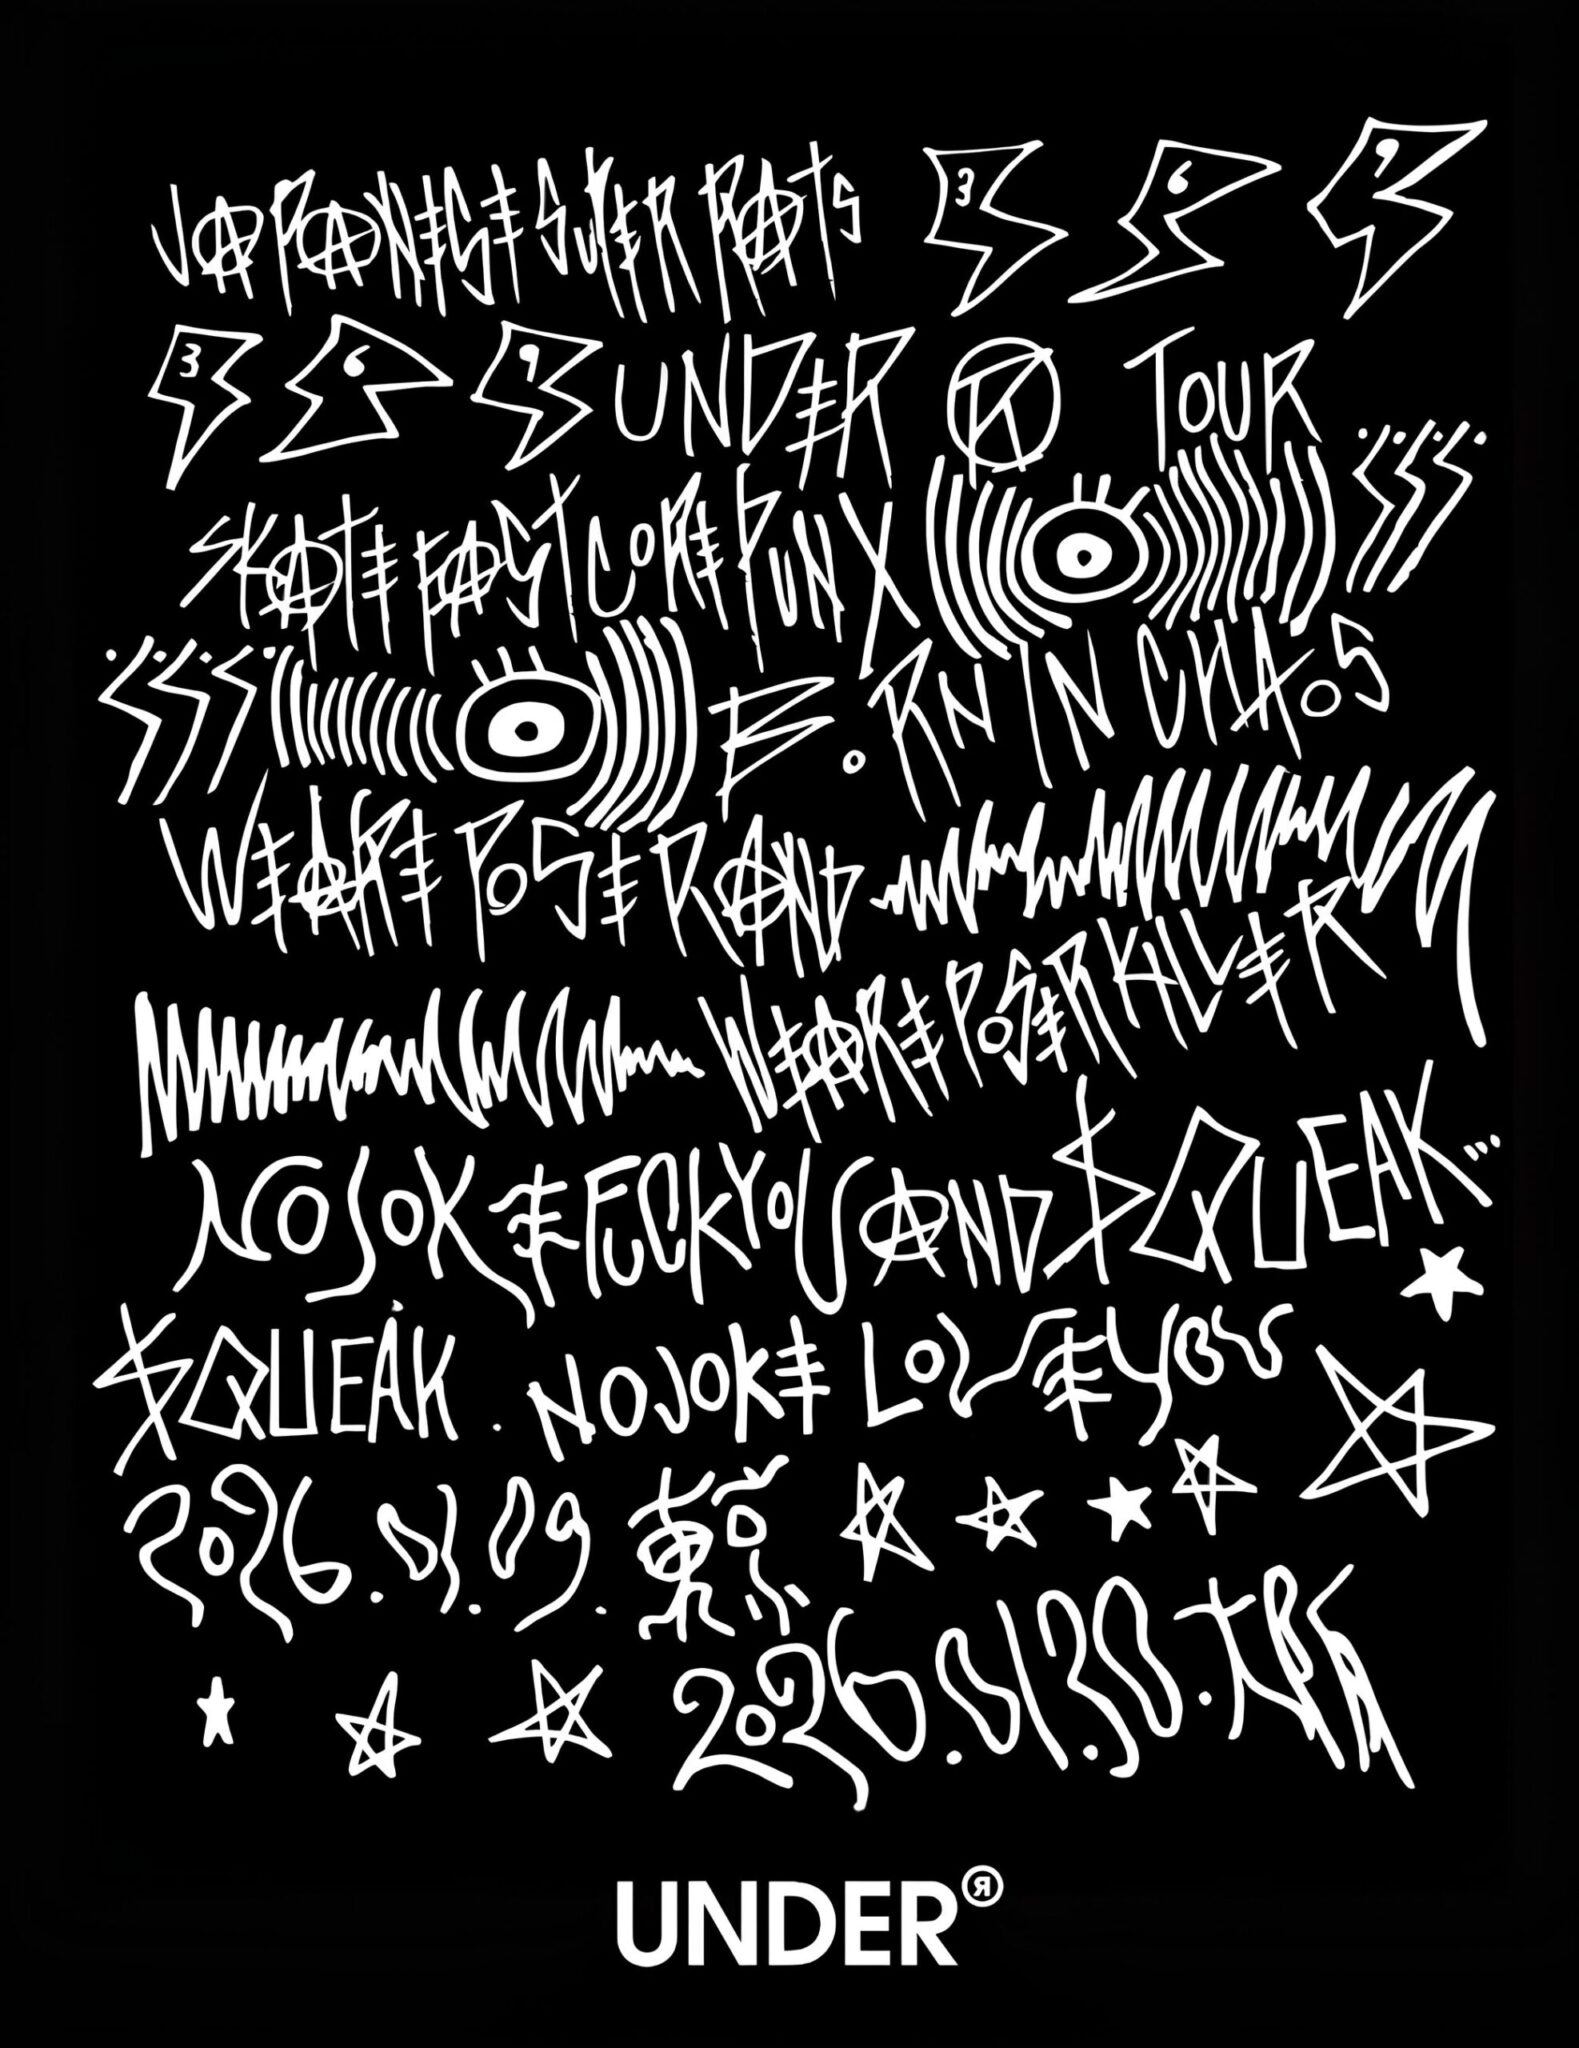 JAPANESE SUPER RATS 3 6 9
3 6 9 UNDER R TOUR
SKATE FAST CORE PUNX
E.RN IN CHAOS
WE ARE POSER AND
WE ARE POSER KILLER
NO JOKE FUCK YOU AND SQUEAK...
SQUEAK . NO JOKE LOVE YOU
2026.01.09. 東京
2026.01.30.大阪
UNDER®